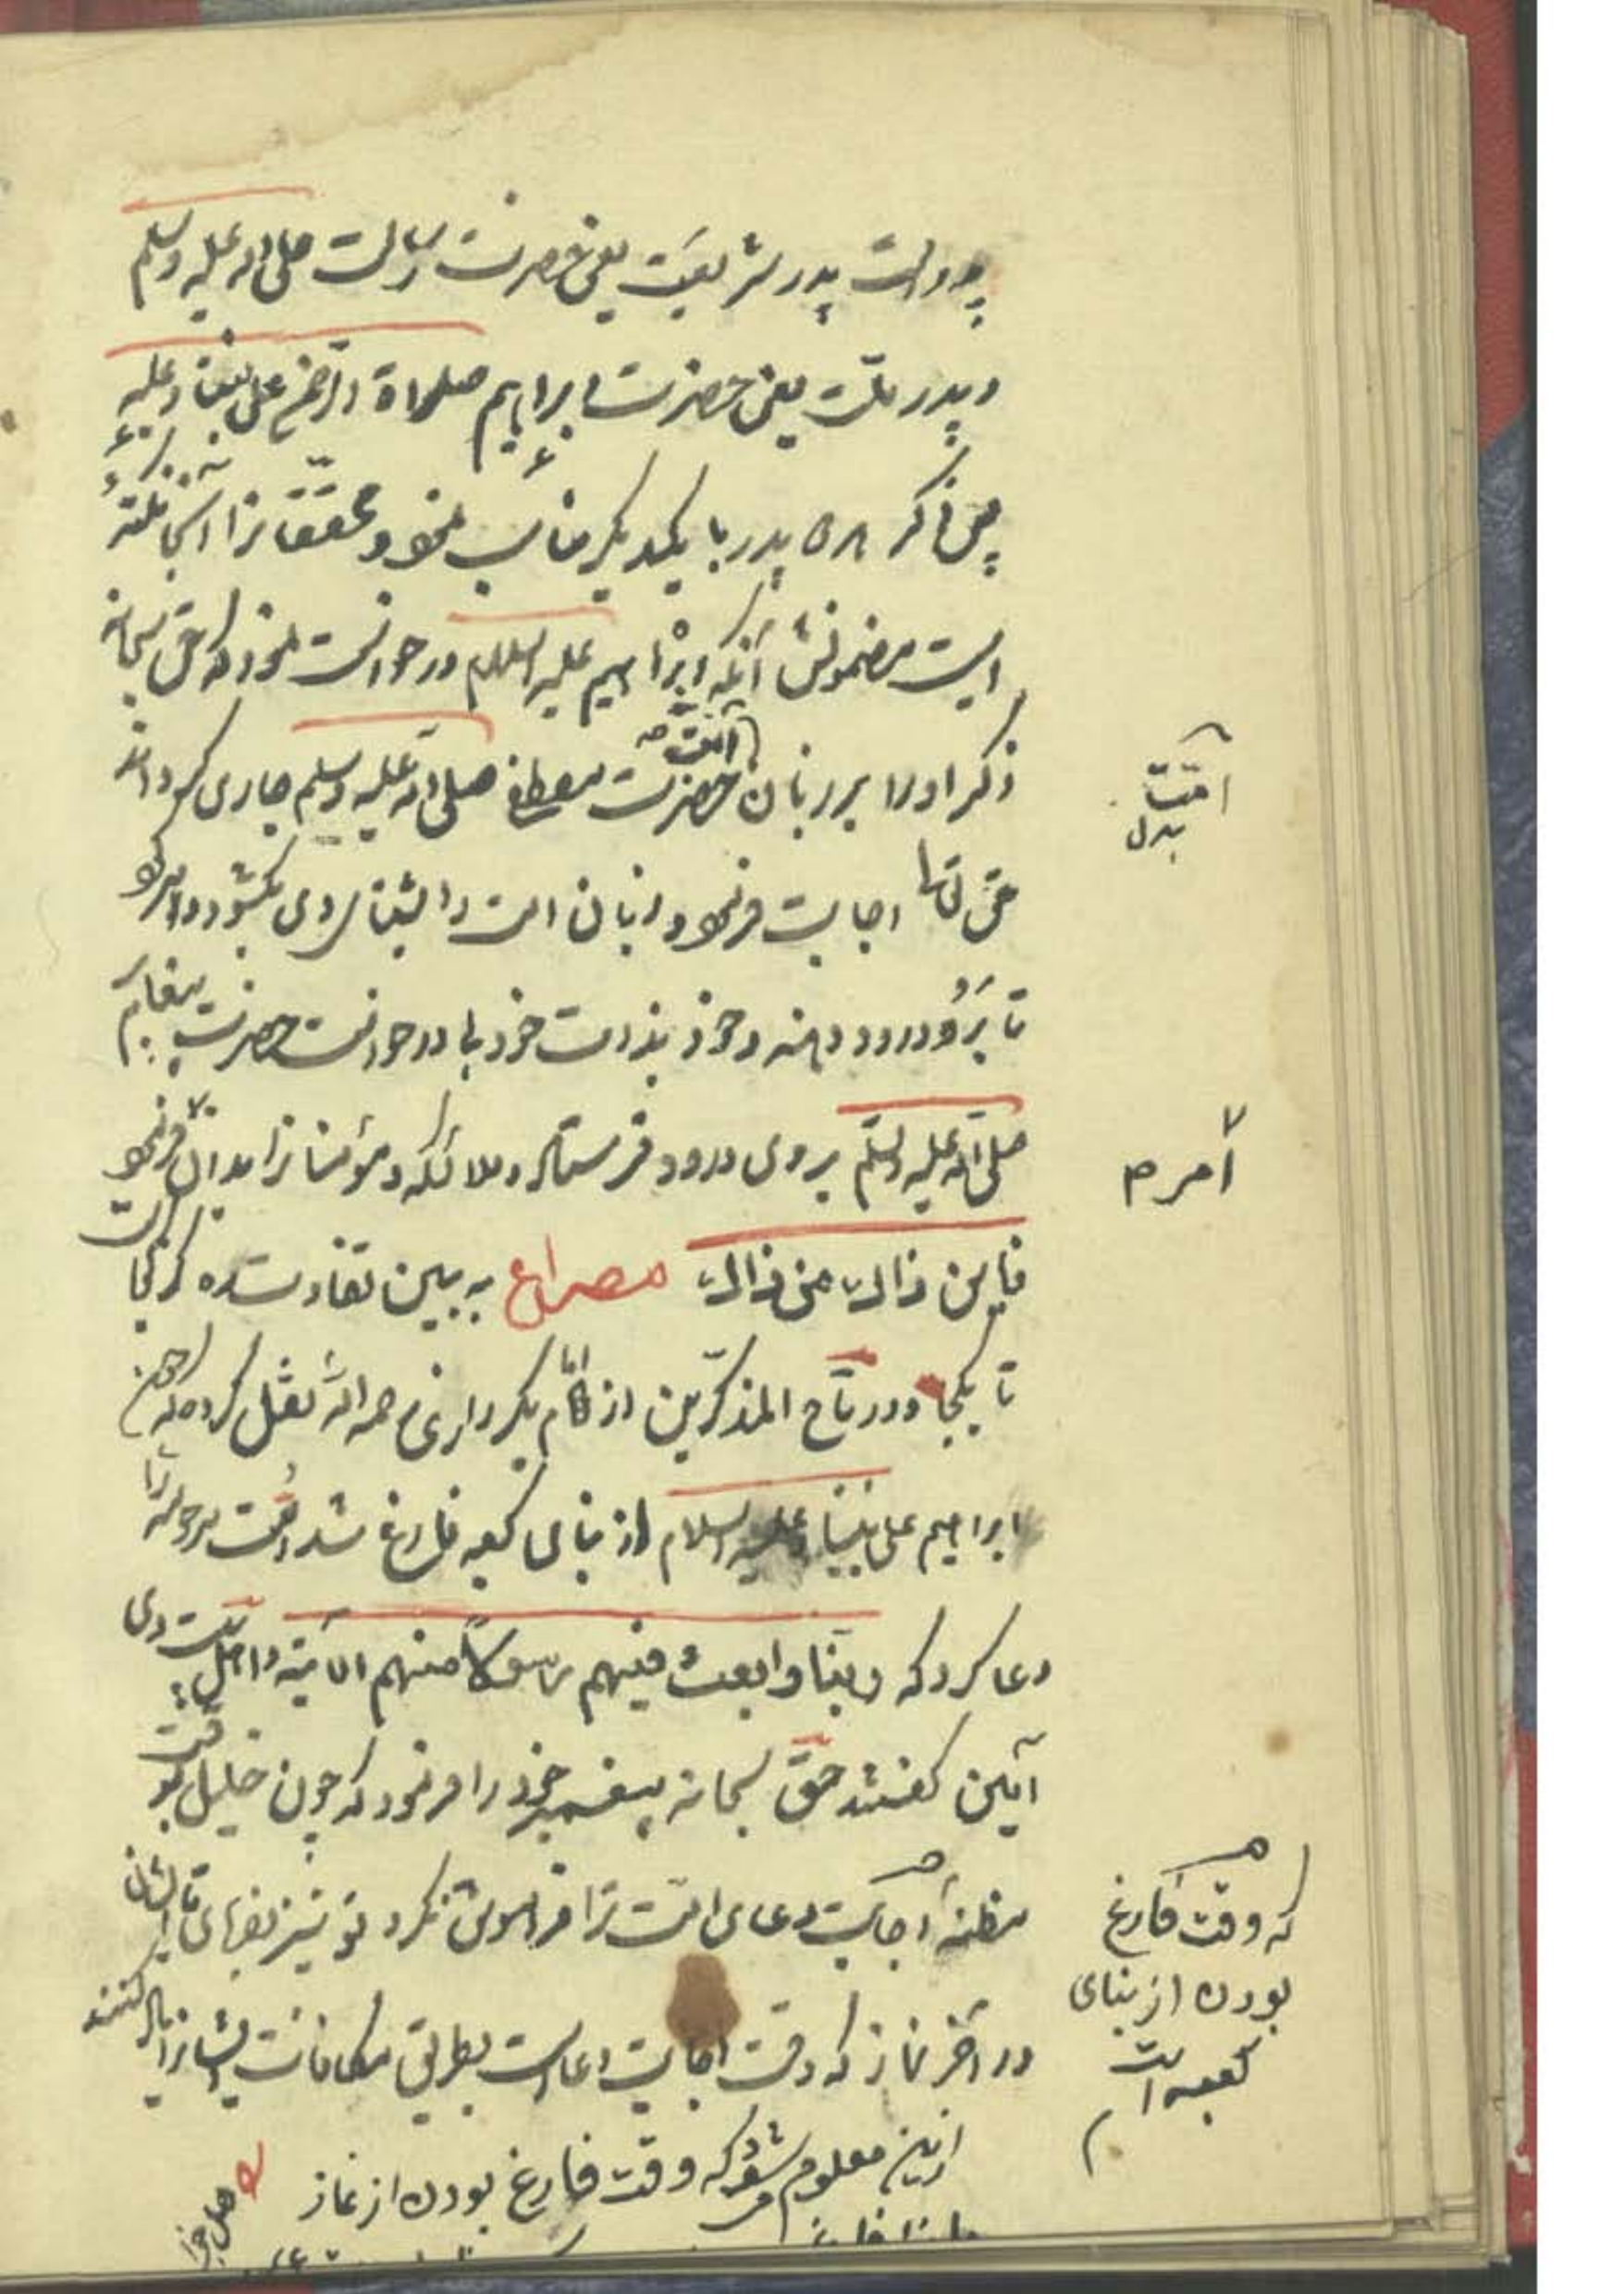 بدولت پدر شریعت یعنی حضرت رسالت صلی الله علیه وسلم
و پدر ملّت یعنی حضرت ابراهیم صلواة الرحمن علی نبینا وعلیه
پس ذکر هر دو پدر با یکدیگر مناسب نمود و محققانرا اینجا نکتهٔ
ایست مضمونش آنکه ابراهیم علیه السلام درخواست نمود که حق سبحانه
ذکر او را بر زبان امّت حضرت مصطفی صلی الله علیه وسلم جاری کرداند
حق تعالی اجابت فرمود و زبان امت را بثنای وی بکشود و امر کرد
تا برو درود دهند و خود بذات خود بی درخواست حضرت پیغامبر
صلی الله علیه وسلّم بروی درود فرستاد و ملائکه و مؤمنانرا بدان فرمود
فاین ذاک من ذاک مصراع به ببین تفاوت ره کز کجا است
تا بکجا و در تاج المذکّرین از امام بکر رازی رحمه الله نقل کرده که چون
ابراهیم علی نبینا وعلیه السلام از بنای کعبه فارغ شد امّت مرحومه را
دعا کرد که ربّنا وابعث فیهم رسولاً منهم الآیة و اهل بیت وی
آمین کفتند حق سبحانه پیغمبر خود را فرمود که چون خلیل بوقت
مظنهٔ اجابت دعای امّت ترا فراموش نکرد تو نیز بفرمای تا ایشان
در آخر نماز که وقت اجابت دعا است بطریق مکافات ایشانرا یاد کنند
ازین معلوم شود که وقت فارغ بودن از نماز
امّت
بدل
امر م
که وقت فارغ
بودن از بنای
کعبه است